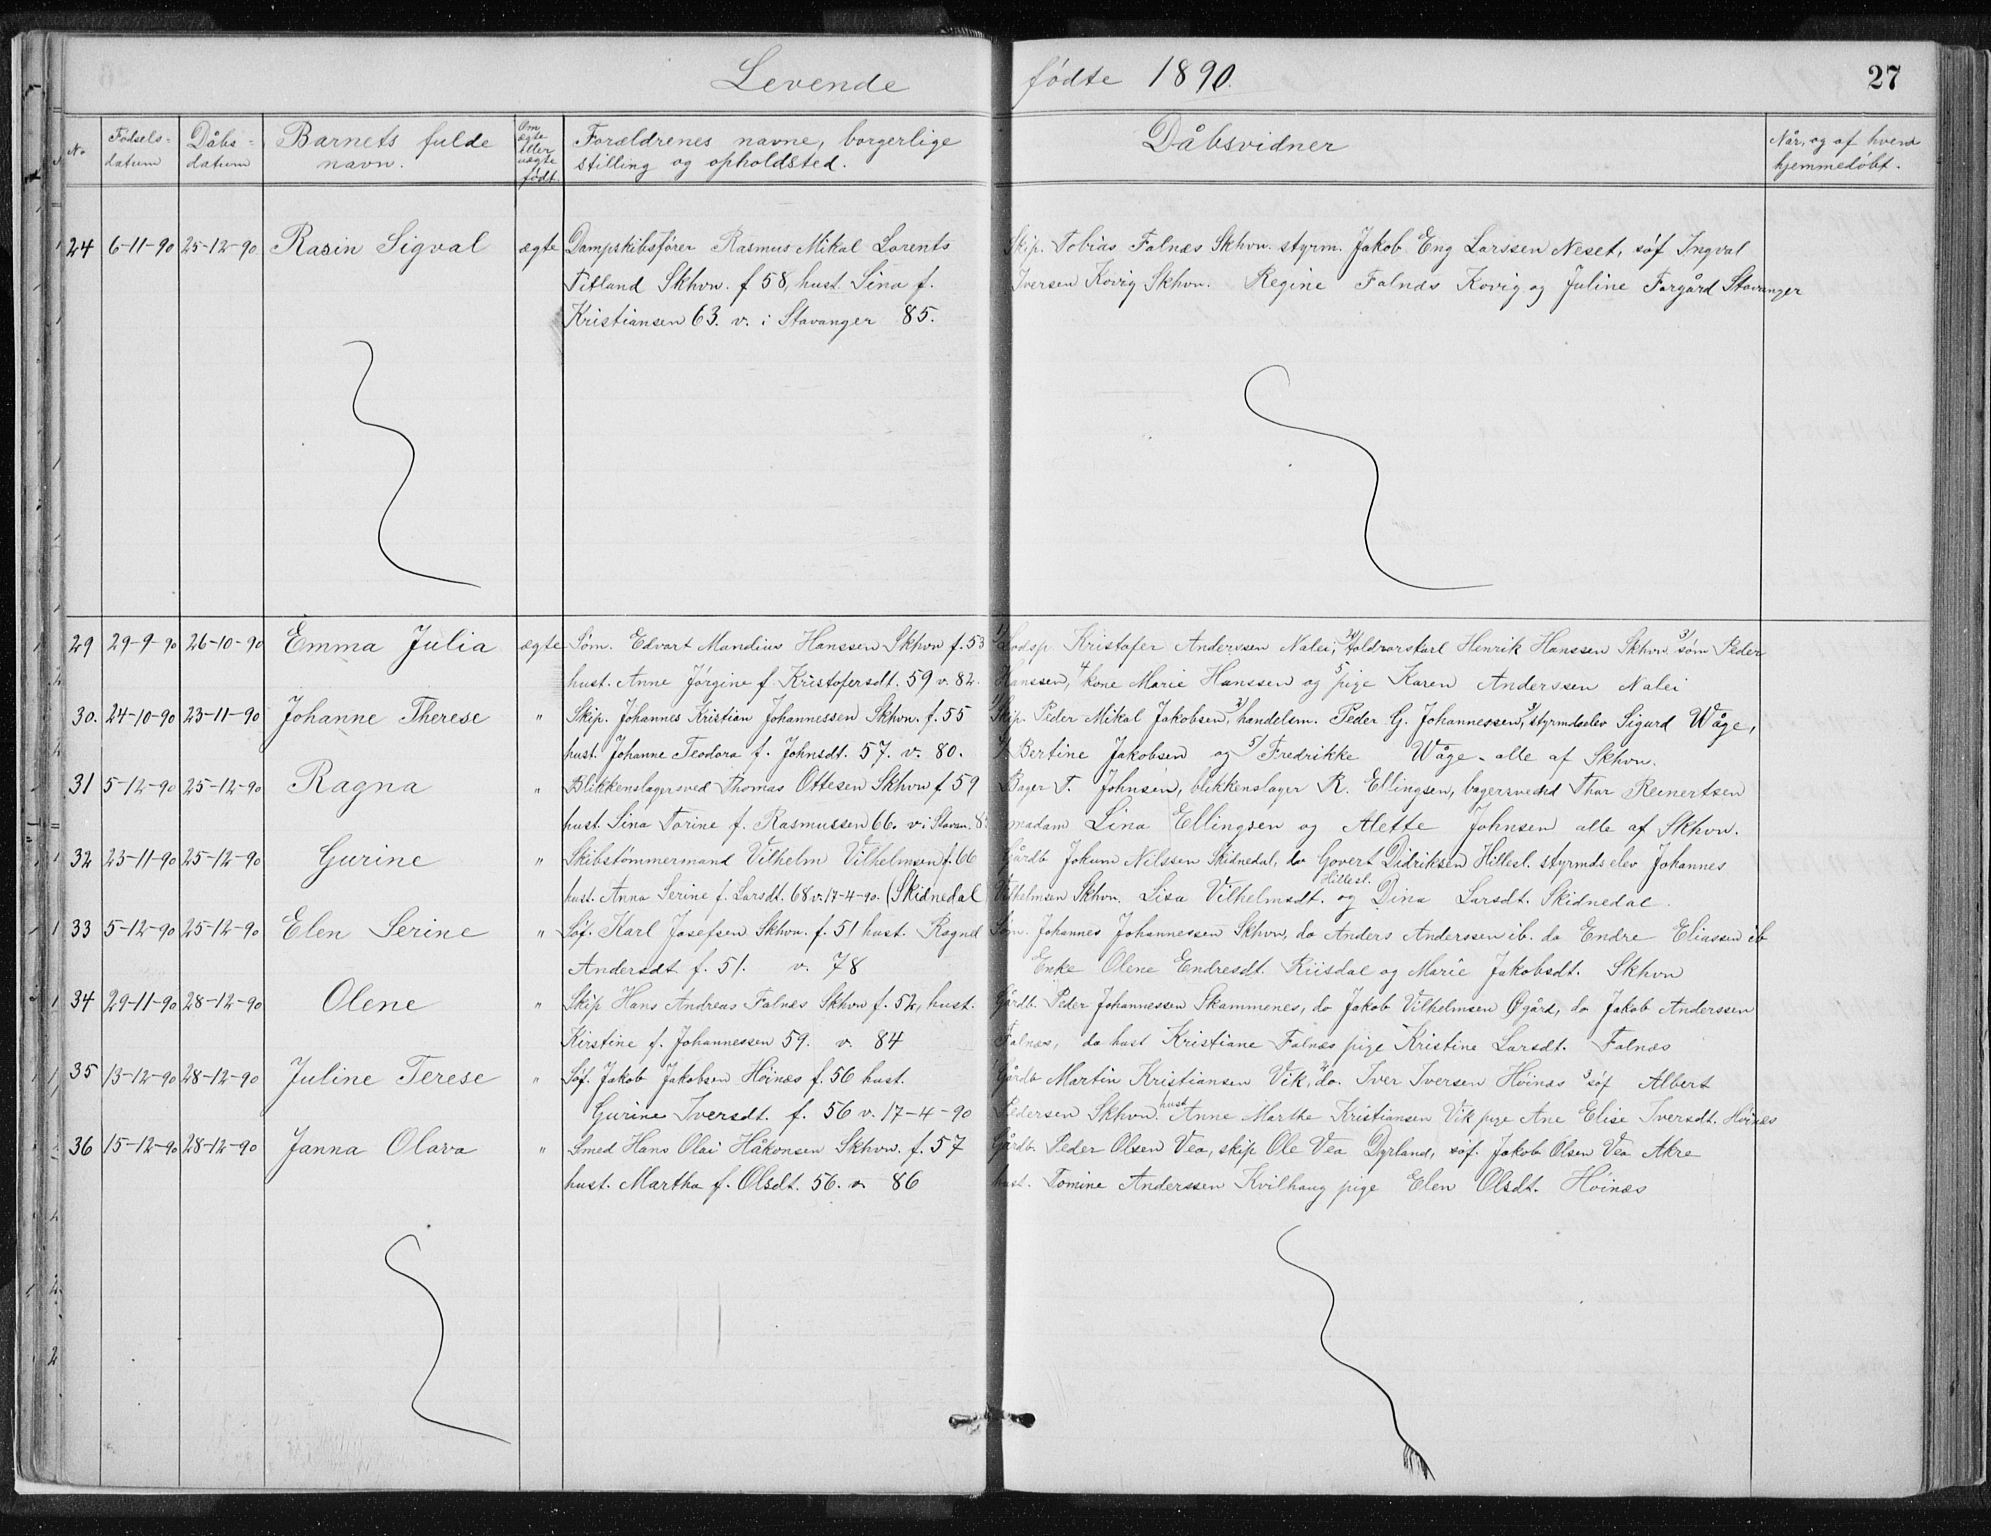 Levende fødte 1890.
27
No. Fødsels-datum Dåbs-datum Barnets fulde navn. Om ægte eller uægte født. Forældrenes navne, borgerlige stilling og opholdsted. Dåbsvidner Når, og af hvem hjemmedøbt.
24 6-11-90 25-12-90 Rasin Sigval ægte Dampskibsfører Rasmus Mikal Lorents Skip. Tobias Falnæs Skhvn. styrm. Jakob Eng Larssen Neset, søf Ingval
Titland Skhvn. f 58, hust Sina f. Iversen Kovig Skhvn. Regine Falnæs Kovig og Juline Fargård Stavanger
Kristiansen 63. v. i Stavanger 85.
29 29-9-90 26-10-90 Emma Julia ægte Søm. Edvart Mandius Hanssen Skhvn f. 53 1/ Lodsp. Kristofer Anderssen Nalei, Henrik Hanssen Skhvn 3/ søm Peder
hust. Anne Jørgine f. Kristofersdt. 59 v. 82. Hanssen, 4 kone Marie Hanssen og 5 pige Karen Anderssen Nalei
30. 24-10-90 23-11-90 Johanne Therese " Skip. Johannes Kristian Johannessen Skhvn. f. 55 Skip. Peder Mikal Jakobsen, 2/ handelsm. Peder G. Johannessen, 3/ styrmdselev Sigurd Wåge,
hust. Johanne Teodora f. Johnsdt. 57. v. 80. 4/ Bertine Jakobsen og 5/ Fredrikke Wåge - alle af Skhvn.
31 5-12-90 25-12-90 Ragna " Blikkenslagersved Thomas Ottesen Skhvn f 59 Bager T. Johnsen, blikkenslager R. Ellingsen, bagersvend Thor Reinertsen
hust. Sina Torine f. Rasmussen 66. v. i Stavan. 8 madam Lina Ellingsen og Alette Johnsen alle af Skhvn.
32 23-11-90 25-12-90 Gurine " Skibstømmermand Vilhelm Vilhelmsen f. 66 Gårdb Jokum Nilssen Skidnedal, do Govert Didriksen Hillesl. styrmds elev Johannes
hust. Anna Serine f. Larsdt. 68 v. 17-4-90. (Skidnedal Vilhelmsen Skhvn. Lisa Vilhelmsdt. Hillesl. og Dina Larsdt. Skidnedal.
33 5-12-90 25-12-90 Elen Serine " Søf. Karl Josefsen Skhvn. f. 51 hust. Ragned Søm. Johannes Johannessen Skhvn, do Anders Anderssen ib. do Endre Eliassen ib
Andersdt f. 51. v. 78 Enke Olene Endresdt. Riisdal og Marie Jakobsdt. Skhvn
34 29-11-90 28-12-90 Olene " Skip Hans Andreas Falnæs Skhvn f. 52, hust. Gårdb. Peder Johannessen Skammenes, do Jakob Vilhelmsen Øgård, do Jakob Anderssen
Kirstine f. Johannessen 59. v. 84 Falnæs, do hust Kristiane Falnæs pige Kristine Larsdt. Falnæs
35 13-12-90 28-12-90 Juline Terese " Søf. Jakob Jakobsen Høinæs f. 56 hust. Gårdb Martin Kristiansen Vik, 2 do. Iver Iversen Høinæs 3 søf Albert
Gurine Iversdt. f. 56 v. 17-4-90 Pedersen Skhvn. hust Anne Marthe Kristiansen Vik pige Ane Elise Iversdt. Høinæs
36 15-12-90 28-12-90 Janna Olava " Smed Hans Olai Håkonsen Skhvn. f. 57 Gårdb. Peder Olsen Vea, skip Ole Vea Dyrland, søf. Jakob Olsen Vea Akre
hust. Martha f. Olsdt. 56. v. 86 hust. Tomine Anderssen Kvilhaug pige Elen Olsdt. Høinæs